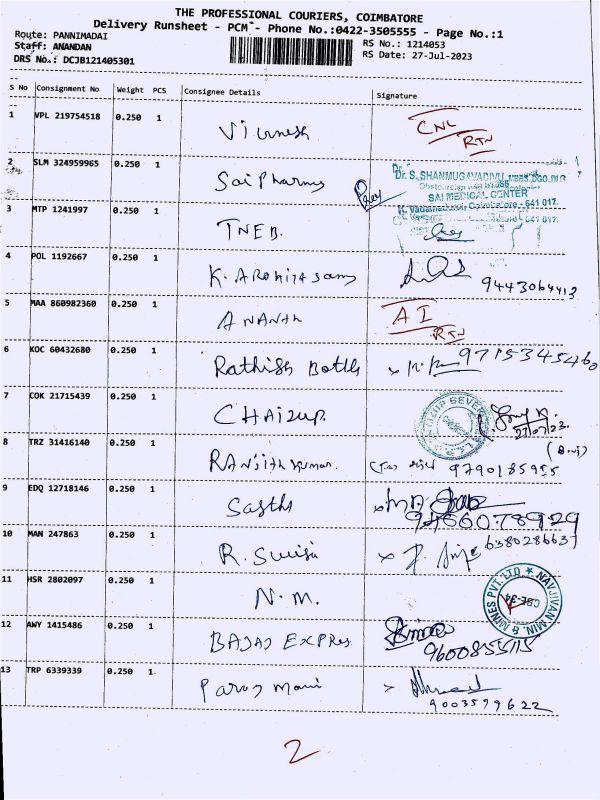 THE PROFESSIONAL COURIERS, COIMBATORE
Delivery Runsheet - PCM - Phone No.:0422-3505555 - Page No.:1
Route: PANNIMADAI
Staff: ANANDAN
RS No.: 1214053
DRS No.: DCJB121405301
RS Date: 27-Jul-2023
S No Consignment No Weight PCS Consignee Details Signature
1 VPL 219754518 0.250 1 CNL
RTN
2 SLM 324959965 0.250 1 Sai Pharmy
Dr. S. SHANMUGAVADIVU, MBBS.DGO.
SAI MEDICAL CENTER
Coimbatore - 641 017.
3 MTP 1241997 0.250 1 TNEB.
4 POL 1192667 0.250 1 K. 9443064413
5 MAA 860982360 0.250 1 ANANth AI
RTN
6 KOC 60432680 0.250 1 Rathish 9715345460
7 COK 21715439 0.250 1 CHAIZUP.
27/07/23
8 TRZ 31416140 0.250 1 RANjith kumar. 9790185955
9 EDQ 12718146 0.250 1 Sasthi
10 MAN 247863 0.250 1 R. 6380286637
11 HSR 2802097 0.250 1 N.M.
NAVJIVAN MIN. & MINES PVT. LTD
CBE-34
12 AWY 1415486 0.250 1 BAJAJ EXPRES
9600855115
13 TRP 6339339 0.250 1 mani
9003579622
2